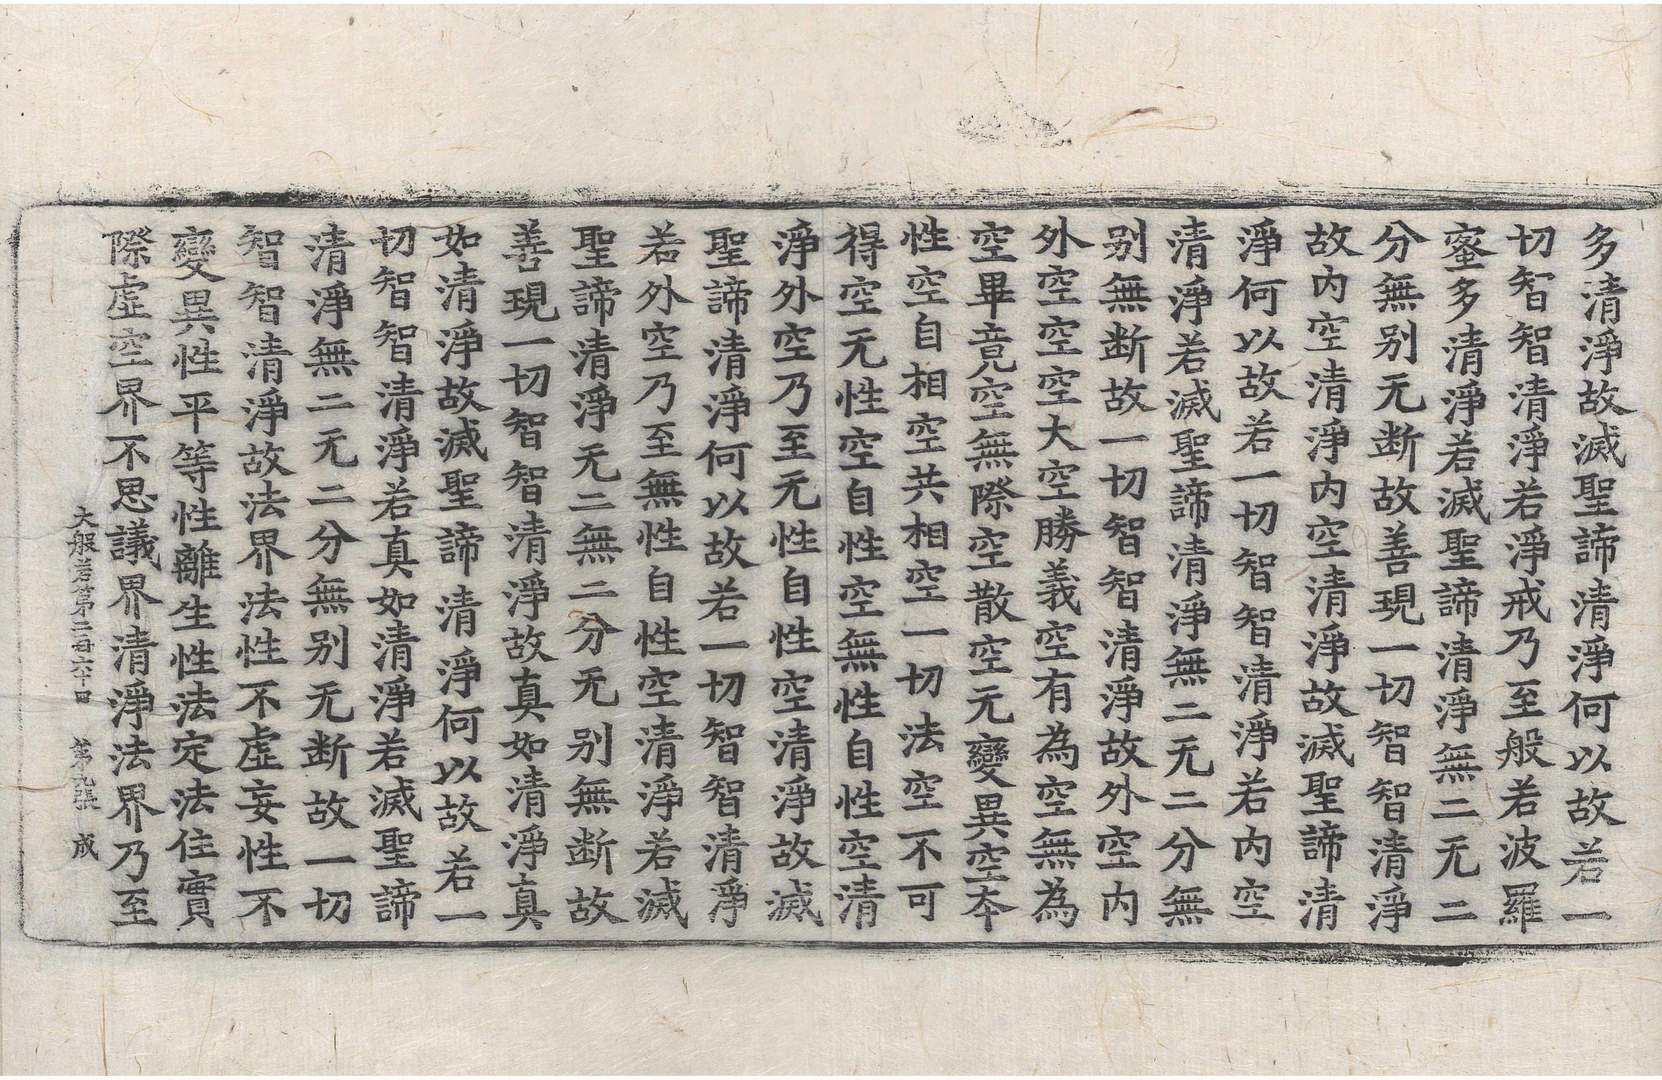 多清淨故滅聖諦清淨何以故若一
切智智清淨若淨戒乃至般若波羅
蜜多清淨若滅聖諦清淨無二无二
分無别无断故善現一切智智清淨
故内空清淨内空清淨故滅聖諦清
淨何以故若一切智智清淨若内空
清淨若滅聖諦清淨無二无二分無
别無断故一切智智清淨故外空内
外空空空大空勝義空有為空無為
空畢竟空無際空散空无變異空夲
性空自相空共相空一切法空不可
得空无性空自性空無性自性空清
淨外空乃至无性自性空清淨故滅
聖諦清淨何以故若一切智智清淨
若外空乃至無性自性空清淨若滅
聖諦清淨无二無二分无别無断故
善現一切智智清淨故真如清淨真
如清淨故滅聖諦清淨何以故若一
切智智清淨若真如清淨若滅聖諦
清淨無二无二分無别无断故一切
智智清淨故法界法性不虚妄性不
變異性平等性離生性法定法住實
際虚空界不思議界清淨法界乃至
大般若第二百六十四 第九張 成